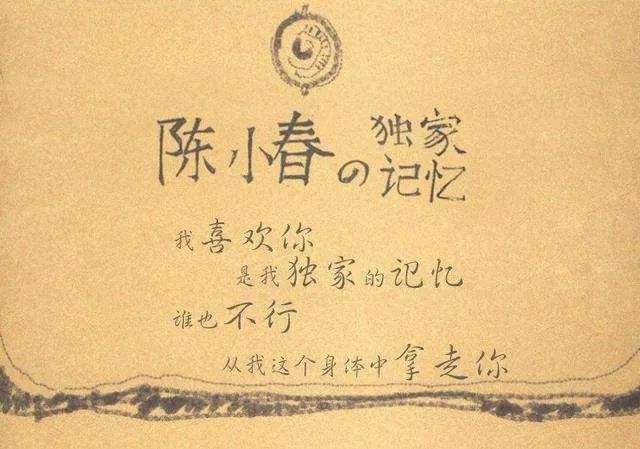 陈小春の独家记忆
我喜欢你
是我独家的记忆
谁也不行
从我这个身体中拿走你